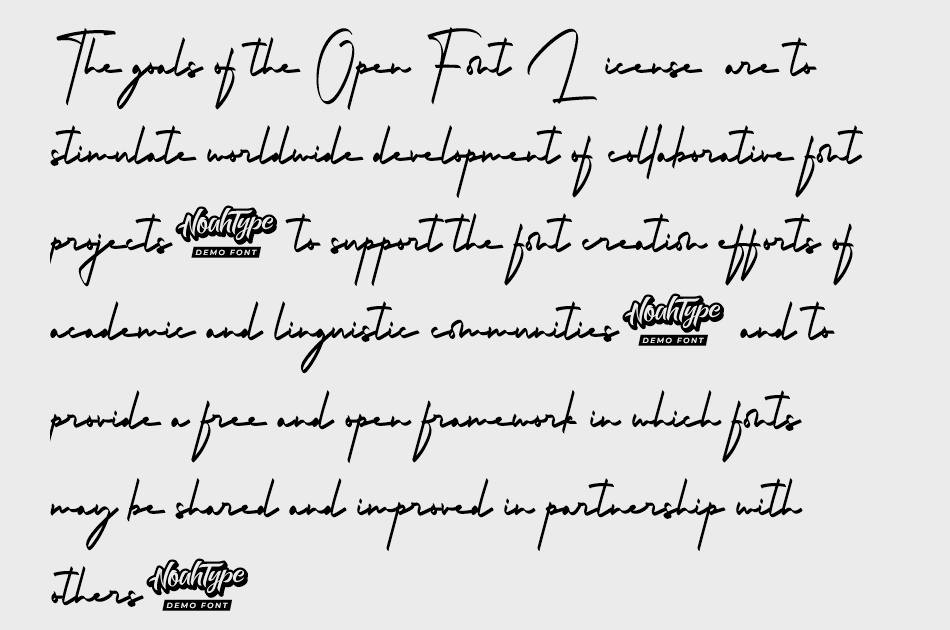 The goals of the Open Font License are to
stimulate worldwide development of collaborative font
projects NoahType DEMO FONT to support the font creation efforts of
academic and linguistic communities NoahType DEMO FONT and to
provide a free and open framework in which fonts
may be shared and improved in partnership with
others NoahType DEMO FONT